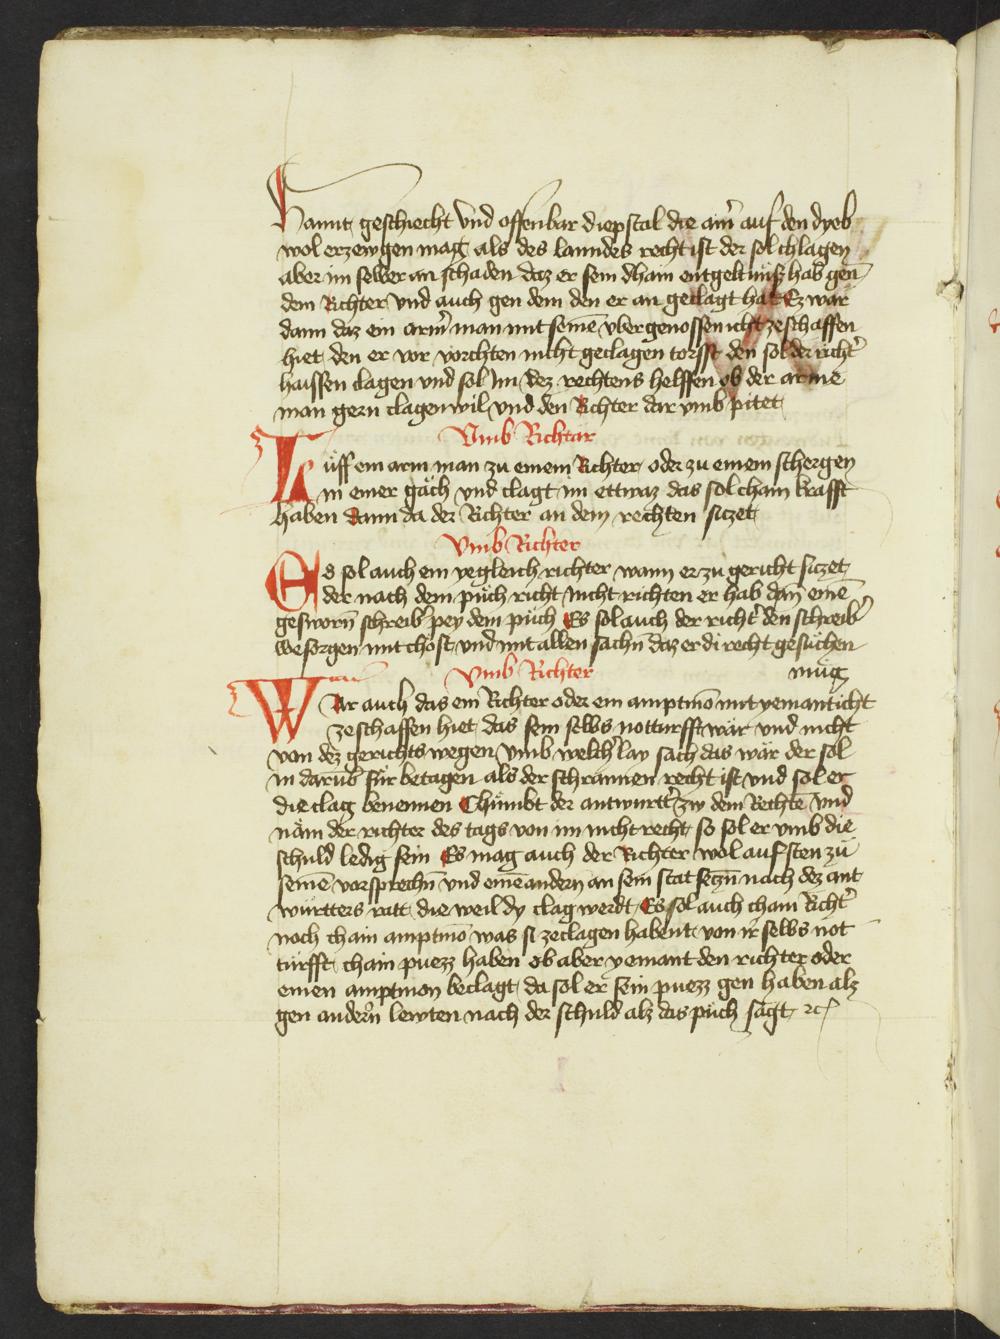 hannt geschiecht vnd offenbar diepstal die aim̄ auf den dyeb
wol erzewgen mag als des lanndes recht ist der sol chlagen
aber im selber an schaden daz er sein dhain entgeltnüß hab gen̄
dem Richter vnd auch gen dem den er an geclagt hat Ez wär
dann daz ein arm̄ man mit seinē vbergenossen icht ze schaffen
hiet den er vor vorchten nicht geclagen torsst den sol der richt̄
haissen clagen vnd sol im dez rechtens helffen ob der armē
man gern clagen wil vnd den Richter dar vmb pitet
Vmb Richtär
Lüff ein arm man zu einem Richter oder zu einem schergen
in einer gäch vnd clagt im ettwaz das sol chain krafft
haben dann da der Richter an dem rechten siczet
Vmb Richter
Es sol auch ein yegleich richter wann er zu gericht siczet
der nach dem püch richt nicht richten er hab dan̄ einē
gesworn̄ schreib̄ pey dem püch Es sol auch der richt̄ den schreib̄
wesorgen mit chost vnd mit allen sachn̄ daz er di recht gesüchen
müg
Vmb Richter
War auch das ein Richter oder ein amptmō mit yemant icht
ze schaffen hiet das sein selbs notturfft wär vnd nicht
von dez gerichts wegen vmb welch̄lay sach das wär der sol
in darub̄ für betagen als der schrannen recht ist vnd sol er
die clag benemen Chümbt der antwurtt̄ zw dem Rechtē vnd
näm der richter des tags von im nicht recht so sol er vmb die
schuld ledig sein Es mag auch der Richter wol auf sten zu
seinē vorsprechn̄ vnd einē andern an sein stat seczn̄ nach dez ant
württers ratt die weil dy clag werdt Es sol auch chain Richt̄
noch chain amptmō was si ze clagen habent von ir̄ selbs not
turfft chain puezz haben ob aber yemant den richter oder
einen amptmon beclagt da sol er sein puezz gen haben alz
gen andern lewten nach der schuld alz das püch sagt ꝛc